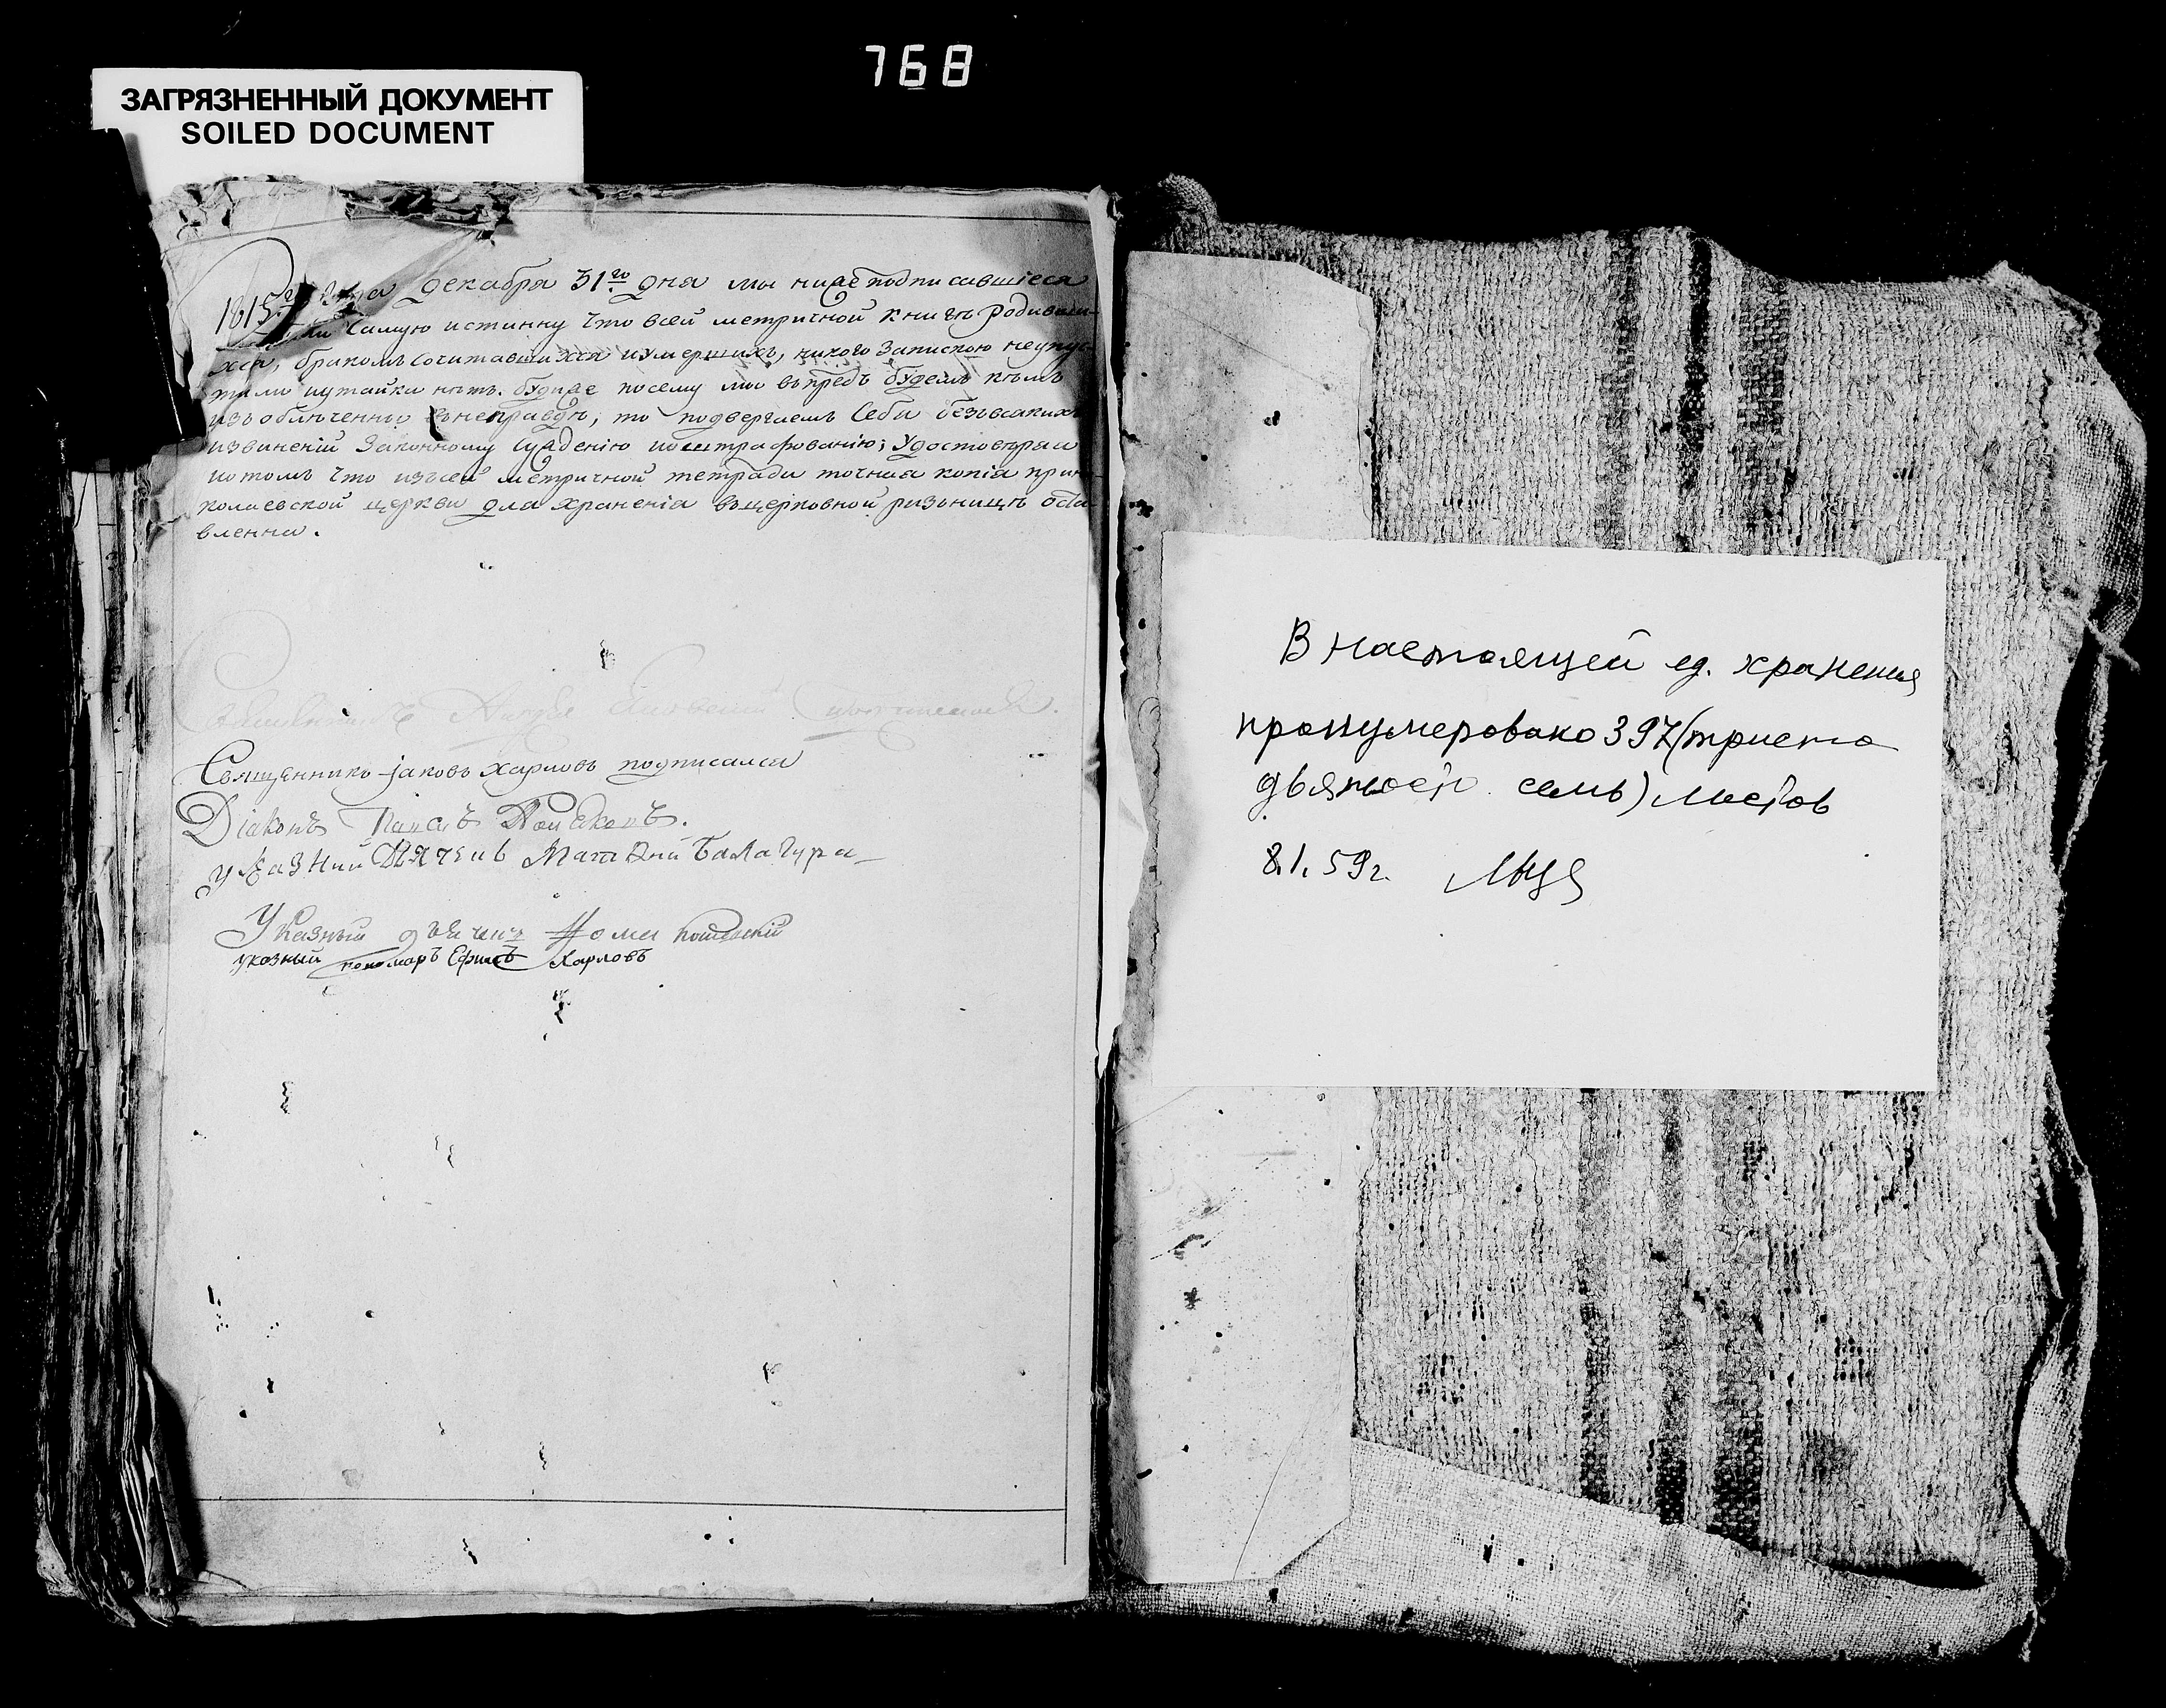 768
ЗАГРЯЗНЕННЫЙ ДОКУМЕНТ
SOILED DOCUMENT
1815го года декабря 31го дня мы нижеподписавшіеся
самую истинну что всей метричной книгѣ родивши-
хся, бракомъ сочитавшихся иумершихъ, никого запискою неупус
тили иутайки нѣтъ. буде же посему мы въпредь будемъ кѣмъ
изъобличенны въ неправдѣ, то подвергаемъ себя безъвсякихъ
извиненій законному сужденію иоштрафованію; удостовѣряя
потомъ что изъсей метричной тетради точная копія при ни-
колаевской церкви для храненія въцерковной ризьницѣ оста
вленна.
Священникъ
Священникъ Іаковъ Харловъ подписался
Діаконъ
указний Дячекъ Матвій Балагура
Указный дьячик Фома
указный пономаръ Ефимъ Харловъ
В настоящей ед. хранения
пронумеровано 397 (триста
двяносто семь) листов
8.1.59г.